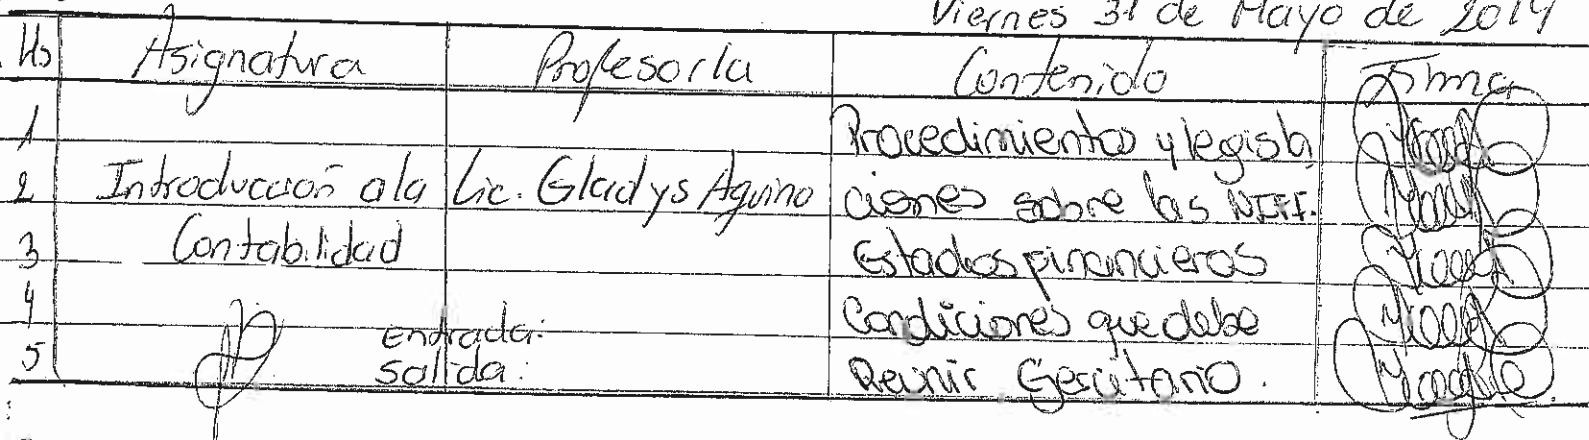 Viernes 31 de Mayo de 2019
Hs Asignatura Profesor/a Contenido Firma
1 Procedimientos y legisla
2 Introducción a la Lic. Gladys Aquino ciones sobre las NIIF.
3 Contabilidad Estados financieros
4 Entrada: Condiciones que debe
5 Salida: Reunir Ejercitario.